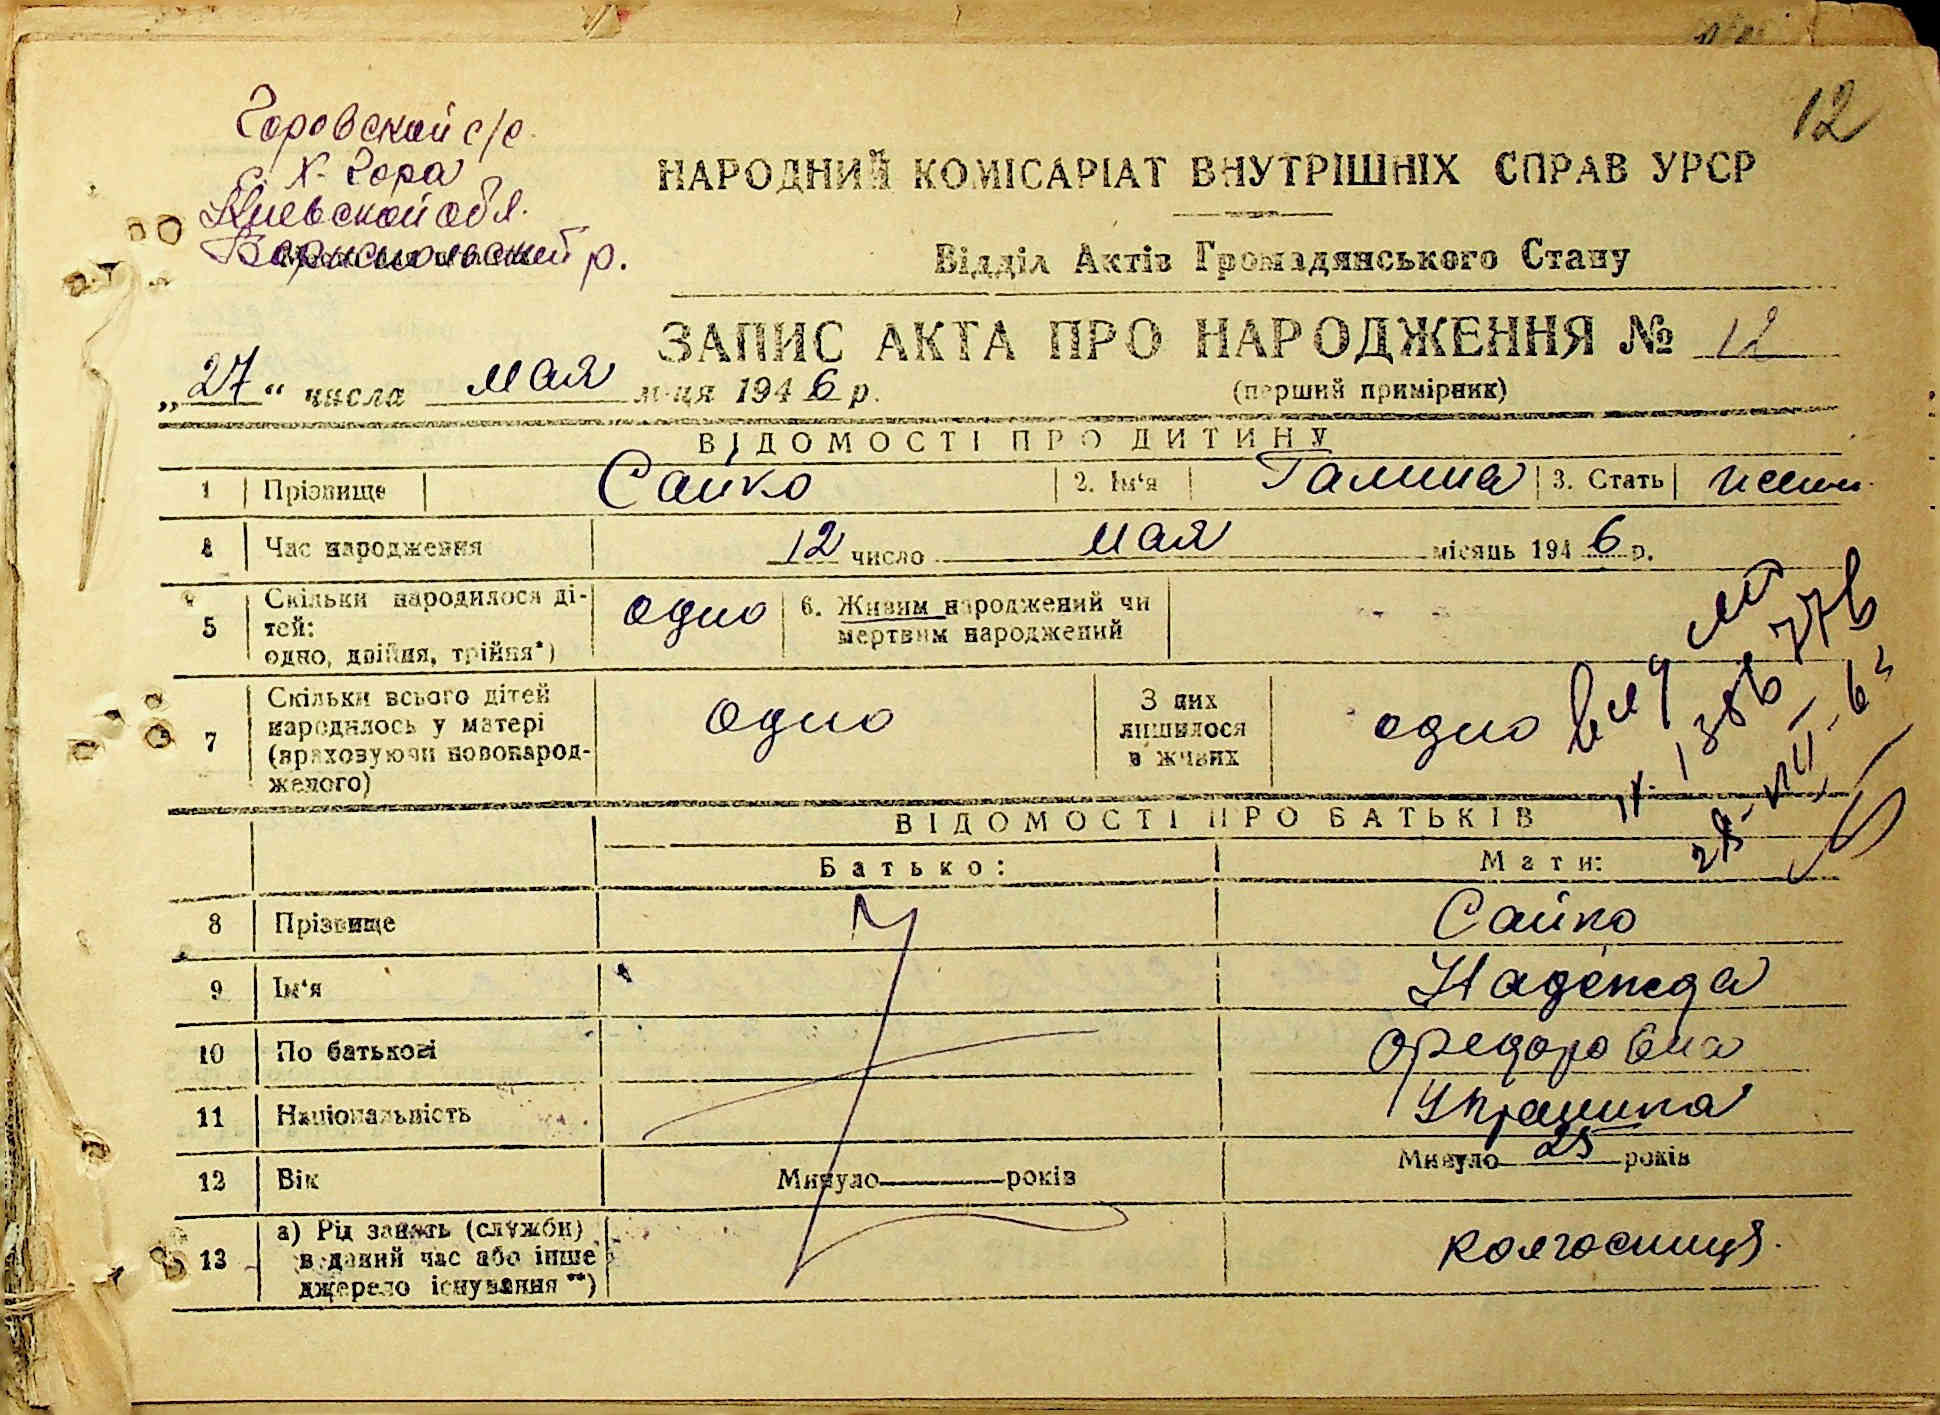 12
Горовской с/с.
с. Х- Гора
Киевской обл.
Бориспольский р.
НАРОДНИЙ КОМІСАРІАТ ВНУТРІШНІХ СПРАВ УРСР
Відділ Актів Громадянського Стану
ЗАПИС АКТА ПРО НАРОДЖЕННЯ № 12
„27“ числа мая м-ця 1946 р.
(перший примірник)
ВІДОМОСТІ ПРО ДИТИНУ
1 Прізвище Сайко 2. Ім'я Галина 3. Стать женс.
4 Час народження 12 число мая місяць 1946 р.
5 Скільки народилося ді-
тей:
одно, двійня, трійня*)
одно
6. Живим народжений чи
мертвим народжений
7 Скільки всього дітей
народилось у матері
(враховуючи новонарод-
желого)
одно
З них
лишилося
в живих
одно
ВІДОМОСТІ ПРО БАТЬКІВ
Батько: Мати:
8 Прізвище Сайко
9 Ім'я Надежда
10 По батькові Федоровна
11 Національність Украинка
12 Вік Минуло років Минуло 25 років
13 а) Рід занять (служби)
в даний час або інше
джерело існування **)
колгоспниця.